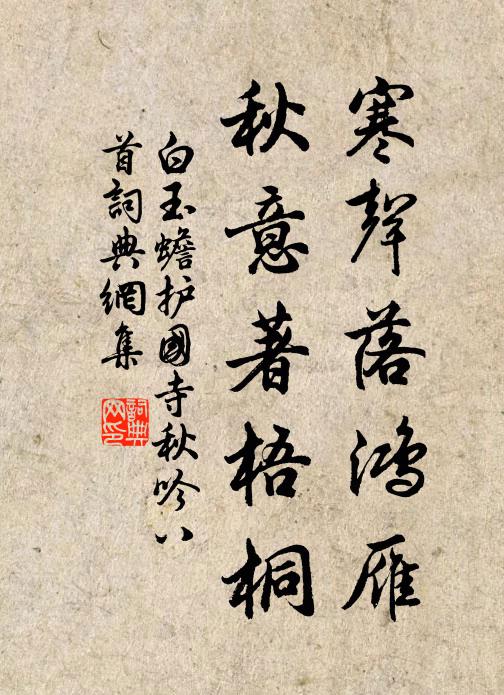 寒聲落鴻雁
秋意著梧桐
白玉蟾护國寺秋吟八
首詞典網集
詞典
网印